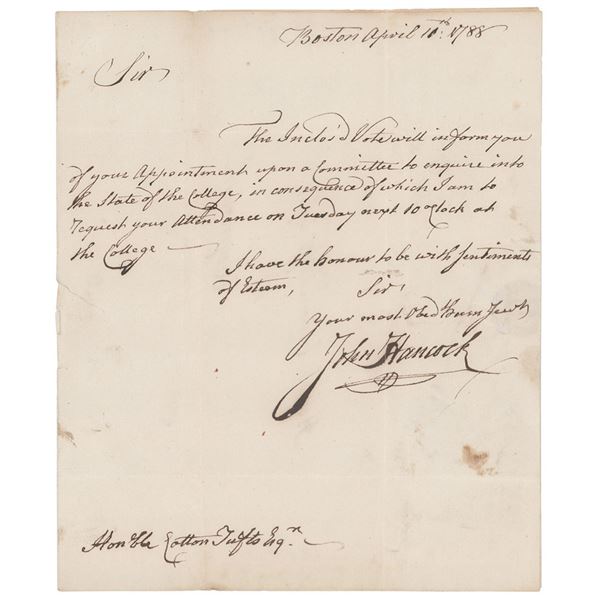 Boston April 11th. 1788
Sir
The Inclos'd Vote will inform you
of your Appointment upon a Committee to enquire into
the State of the College, in consequence of which I am to
request your Attendance on Tuesday next 10 oClock at
the College
I have the honour to be with Sentiments
of Esteem, Sir
Your most Obed hum Servt
John Hancock
Honble Cotton Tufts Esqr